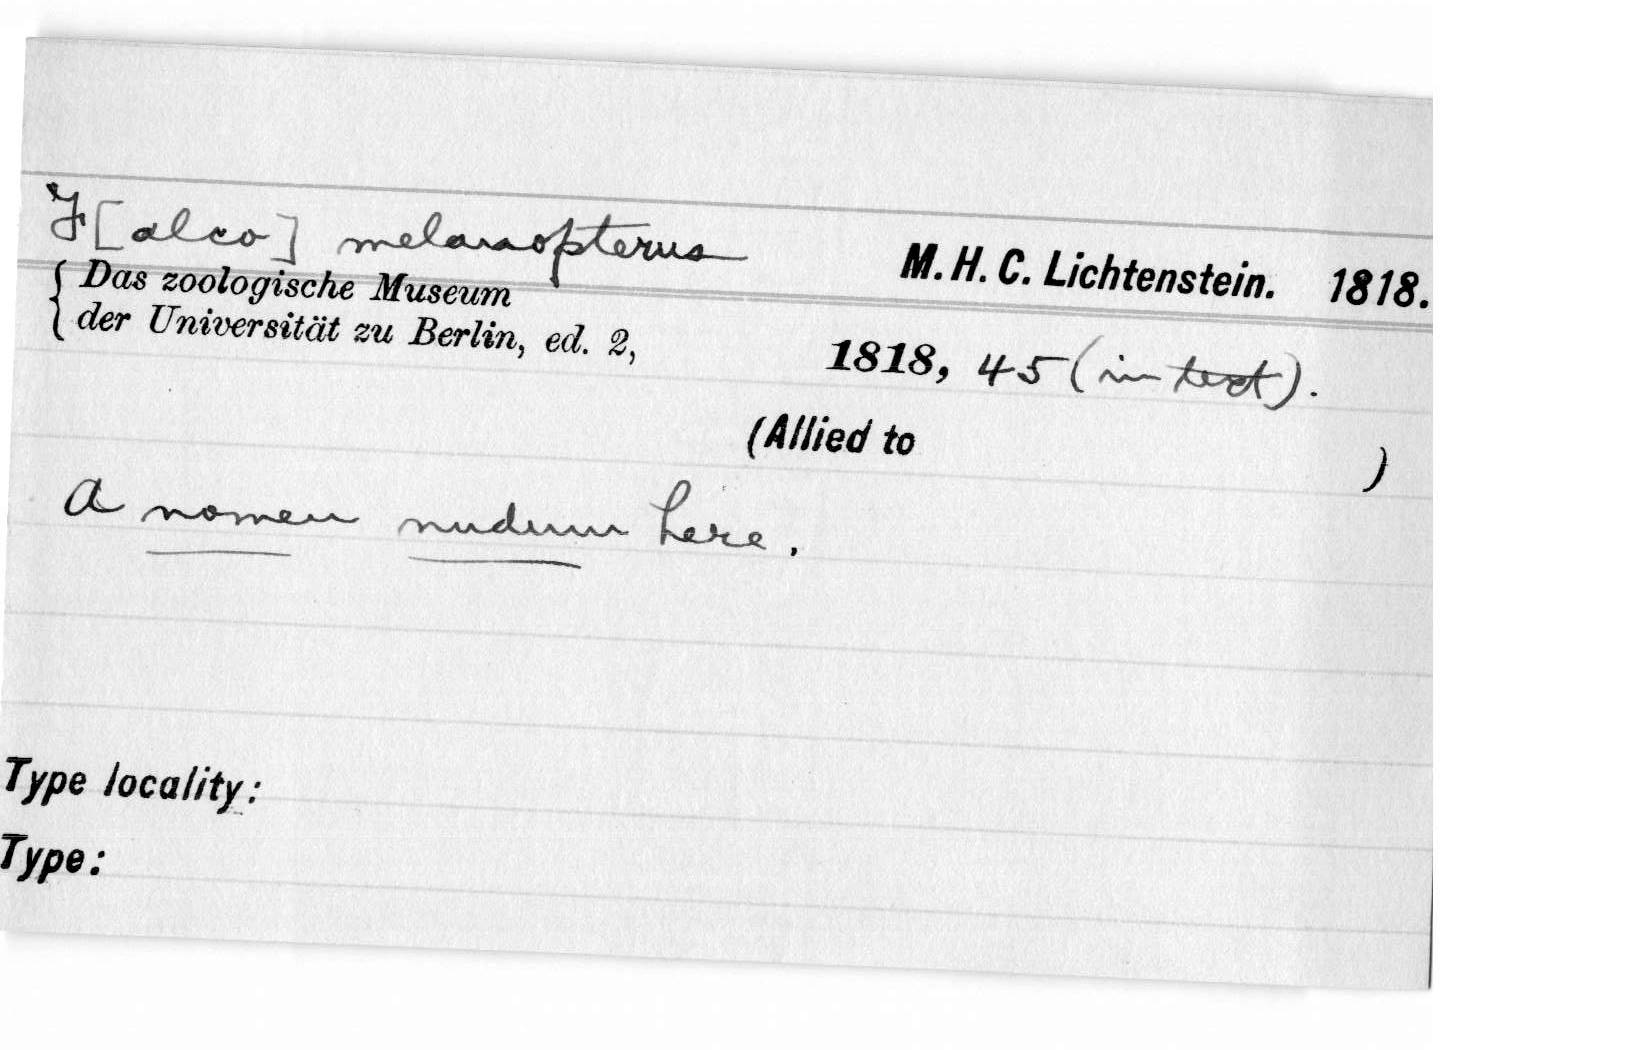 F[alco] melanopterus
M. H. C. Lichtenstein. 1818.
Das zoologische Museum
der Universität zu Berlin, ed. 2,
1818, 45 (in text).
(Allied to )
A nomen nudum here.
Type locality:
Type: